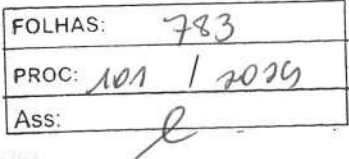 FOLHAS: 783
PROC: 101 / 2025
Ass: